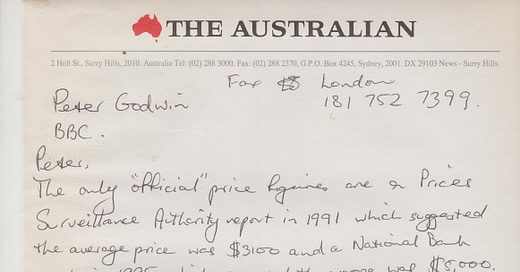 THE AUSTRALIAN
2 Holt St., Surry Hills, 2010. Australia Tel: (02) 288 3000. Fax: (02) 288 2370, G.P.O. Box 4245, Sydney, 2001. DX 29103 News - Surry Hills.
Fax London
Peter Godwin 181 752 7399.
BBC.
Peter,
The only "official" price figures are a Prices
Surveillance Authority report in 1991 which suggested
the average price was $3100 and a National Bank
in 1995 was $5,000.